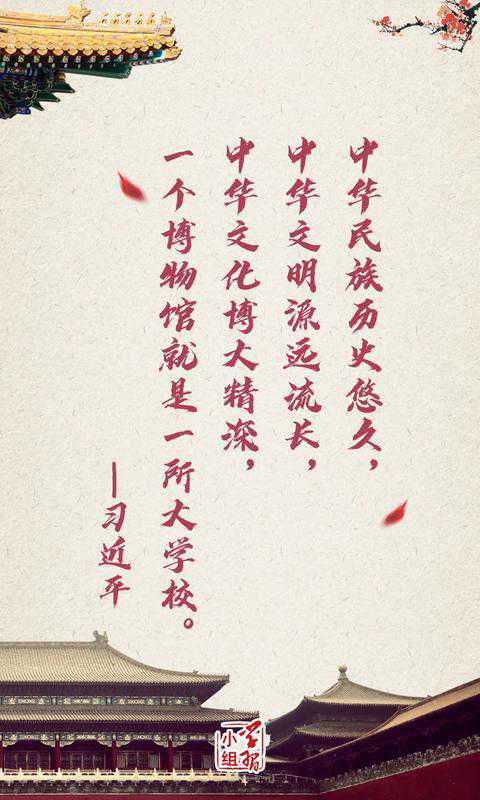 中华民族历史悠久，
中华文明源远流长，
中华文化博大精深，
一个博物馆就是一所大学校。
—习近平
学习
小组